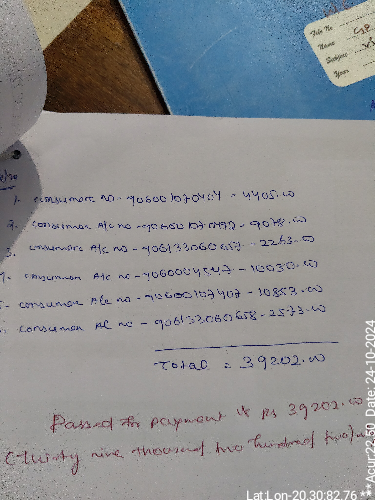 File No
Name
Subject
Year
1. consumer no - 906001070484 - 4405.00
2. consumer A/c no - 906001070492 - 9078.00
3. consumer A/c no - 906133060657 - 2263.00
consumer A/c no - 9060004547 - 10030.00
consumer A/c no - 90600107407 - 10853.00
consumer Ac no - 906133060658 - 2573.00
Total = 39202.00
Passed for payment of Rs 39202.00
(Thirty nine thousand two hundred two
Lat:Lon-20.30:82.76 ***Acur:22.50 Date: 24-10-2024